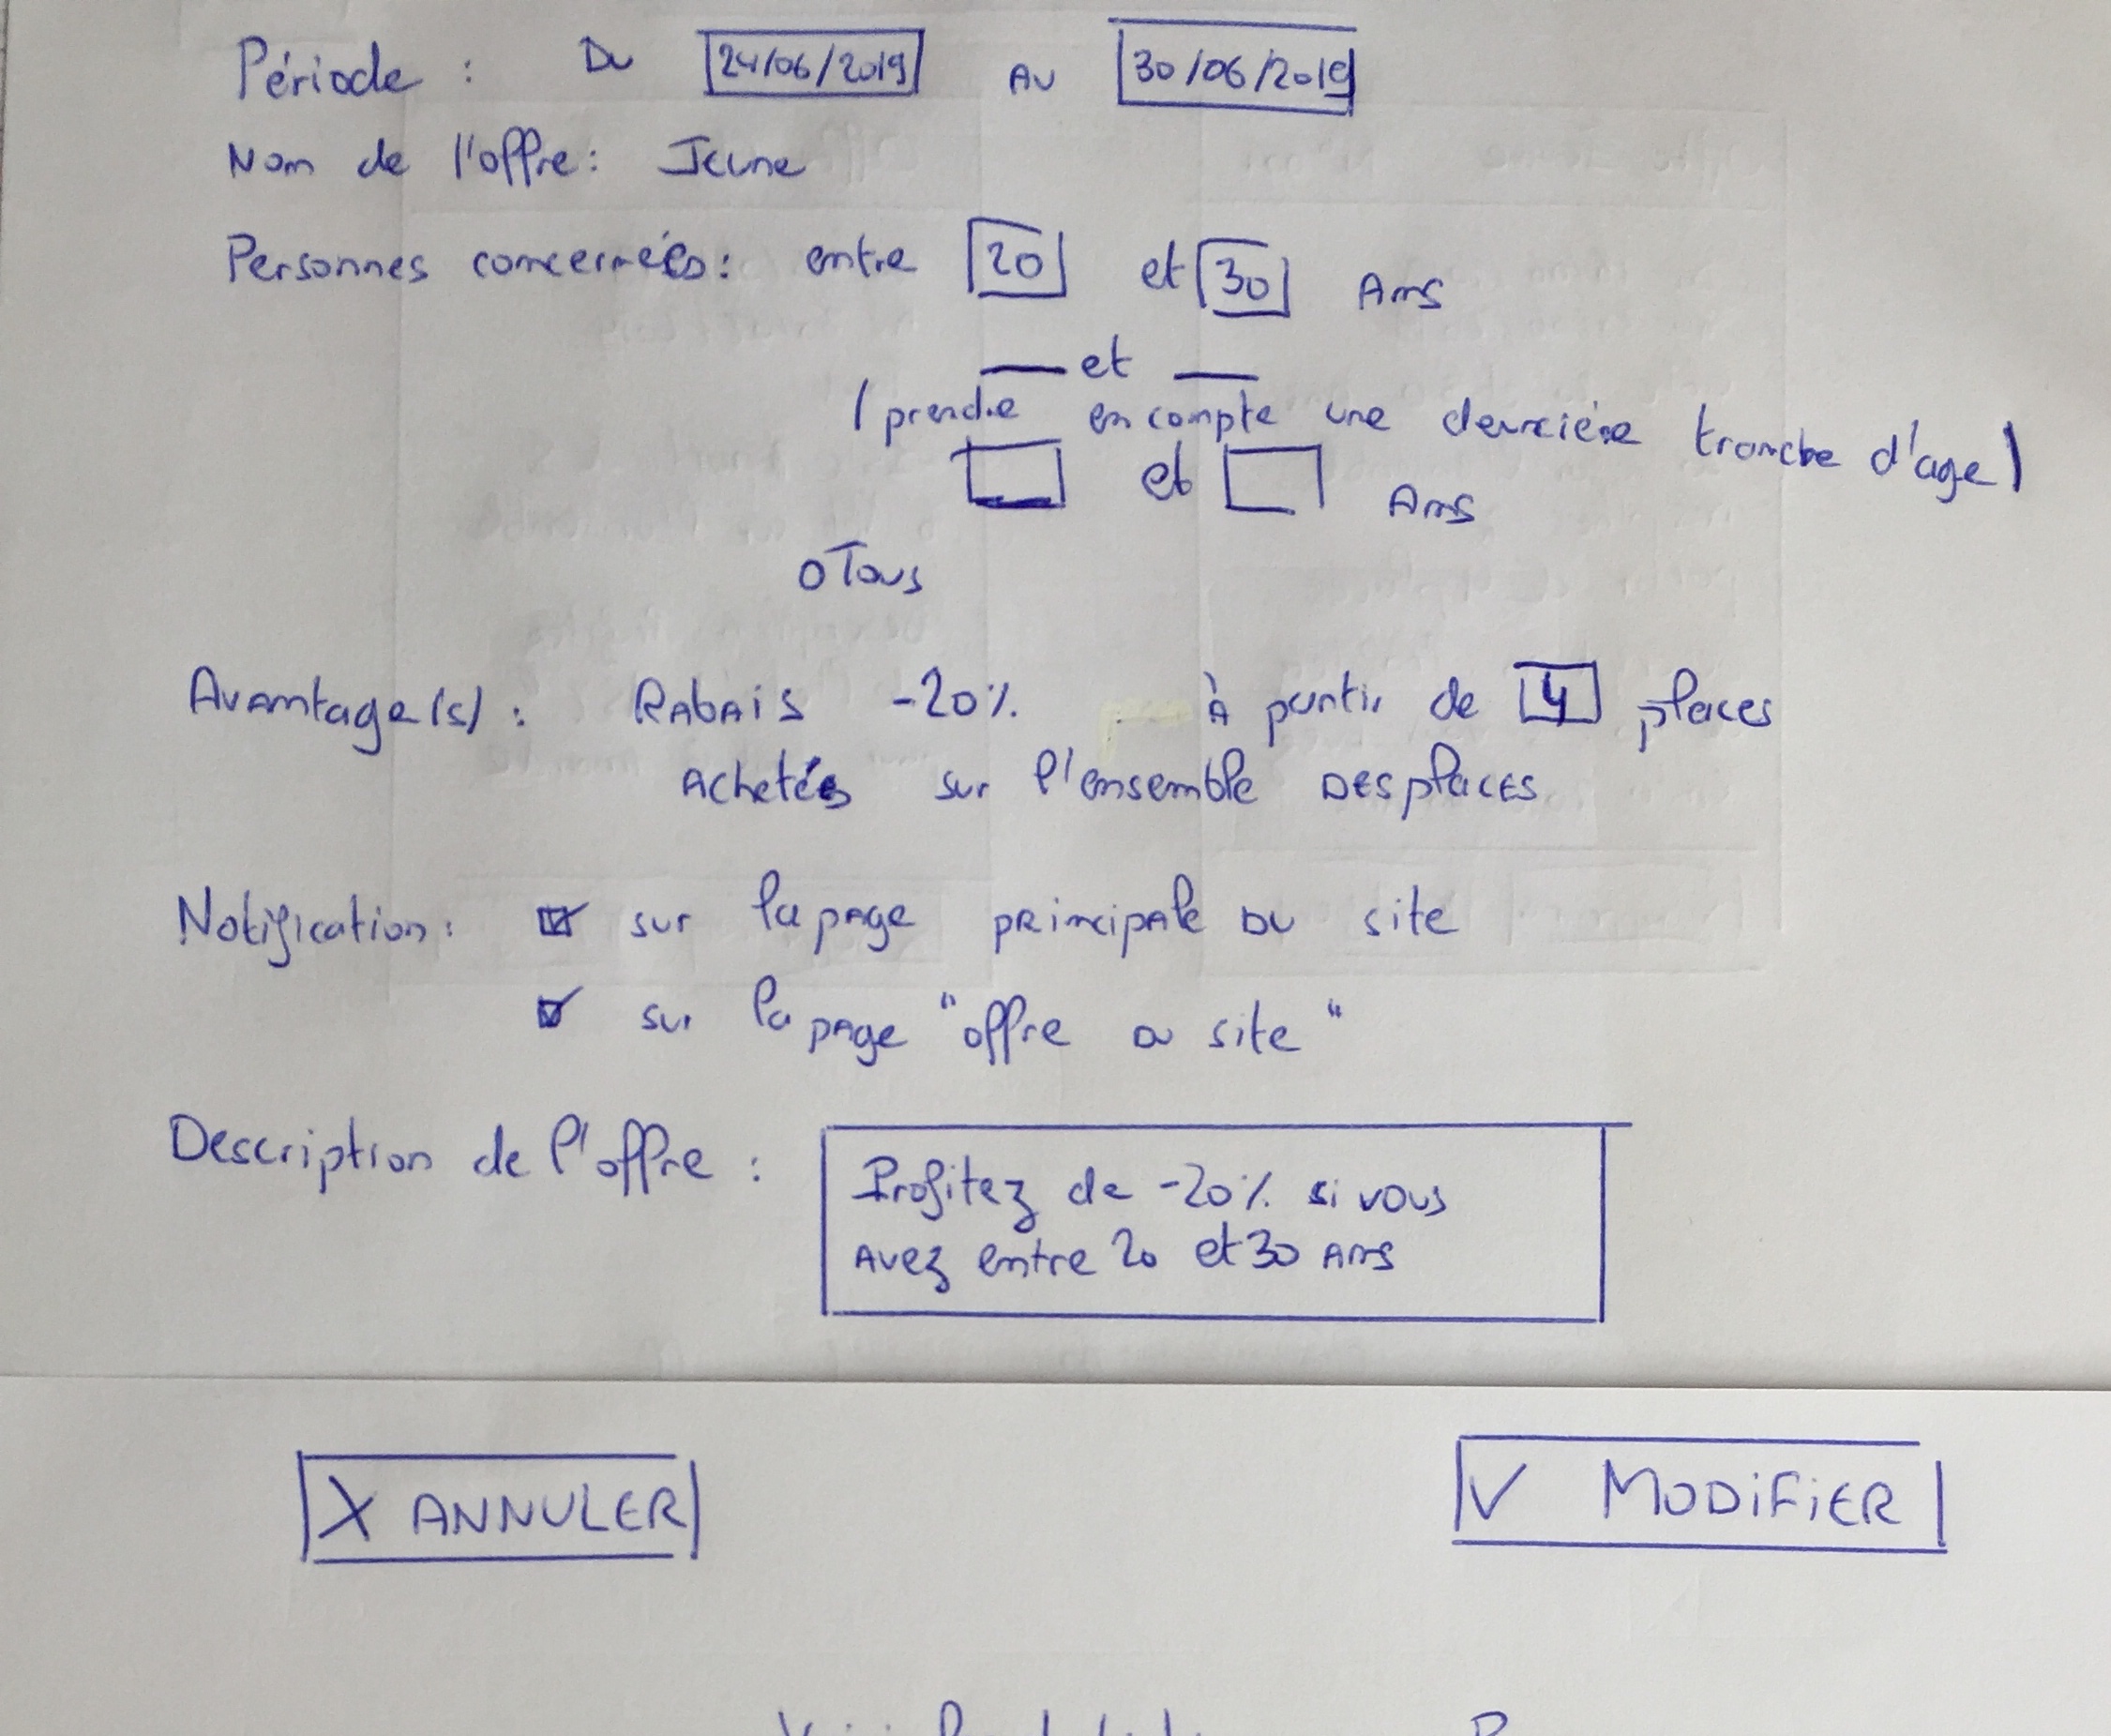 Période : Du 24/06/2019 AU 30/06/2019
Nom de l'offre : Jeune
Personnes concernées : entre 20 et 30 Ans
__ et __
(prendre en compte une deuxième tranche d'age)
et Ans
O Tous
Avantage(s) : Rabais -20% à partir de 4 places
Achetés sur l'ensemble DES places
Notification : ☑ sur la page principale DU site
☑ sur la page "offre du site"
Description de l'offre :
Profitez de -20% si vous
avez entre 20 et 30 Ans
X ANNULER
✓ MODIFIER